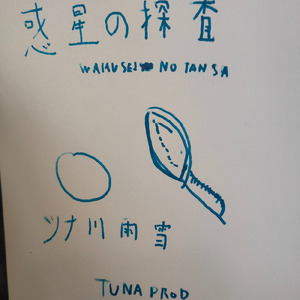 惑星の探査
WAKUSEI NO TANSA
ツナ川雨雪
TUNA PROD